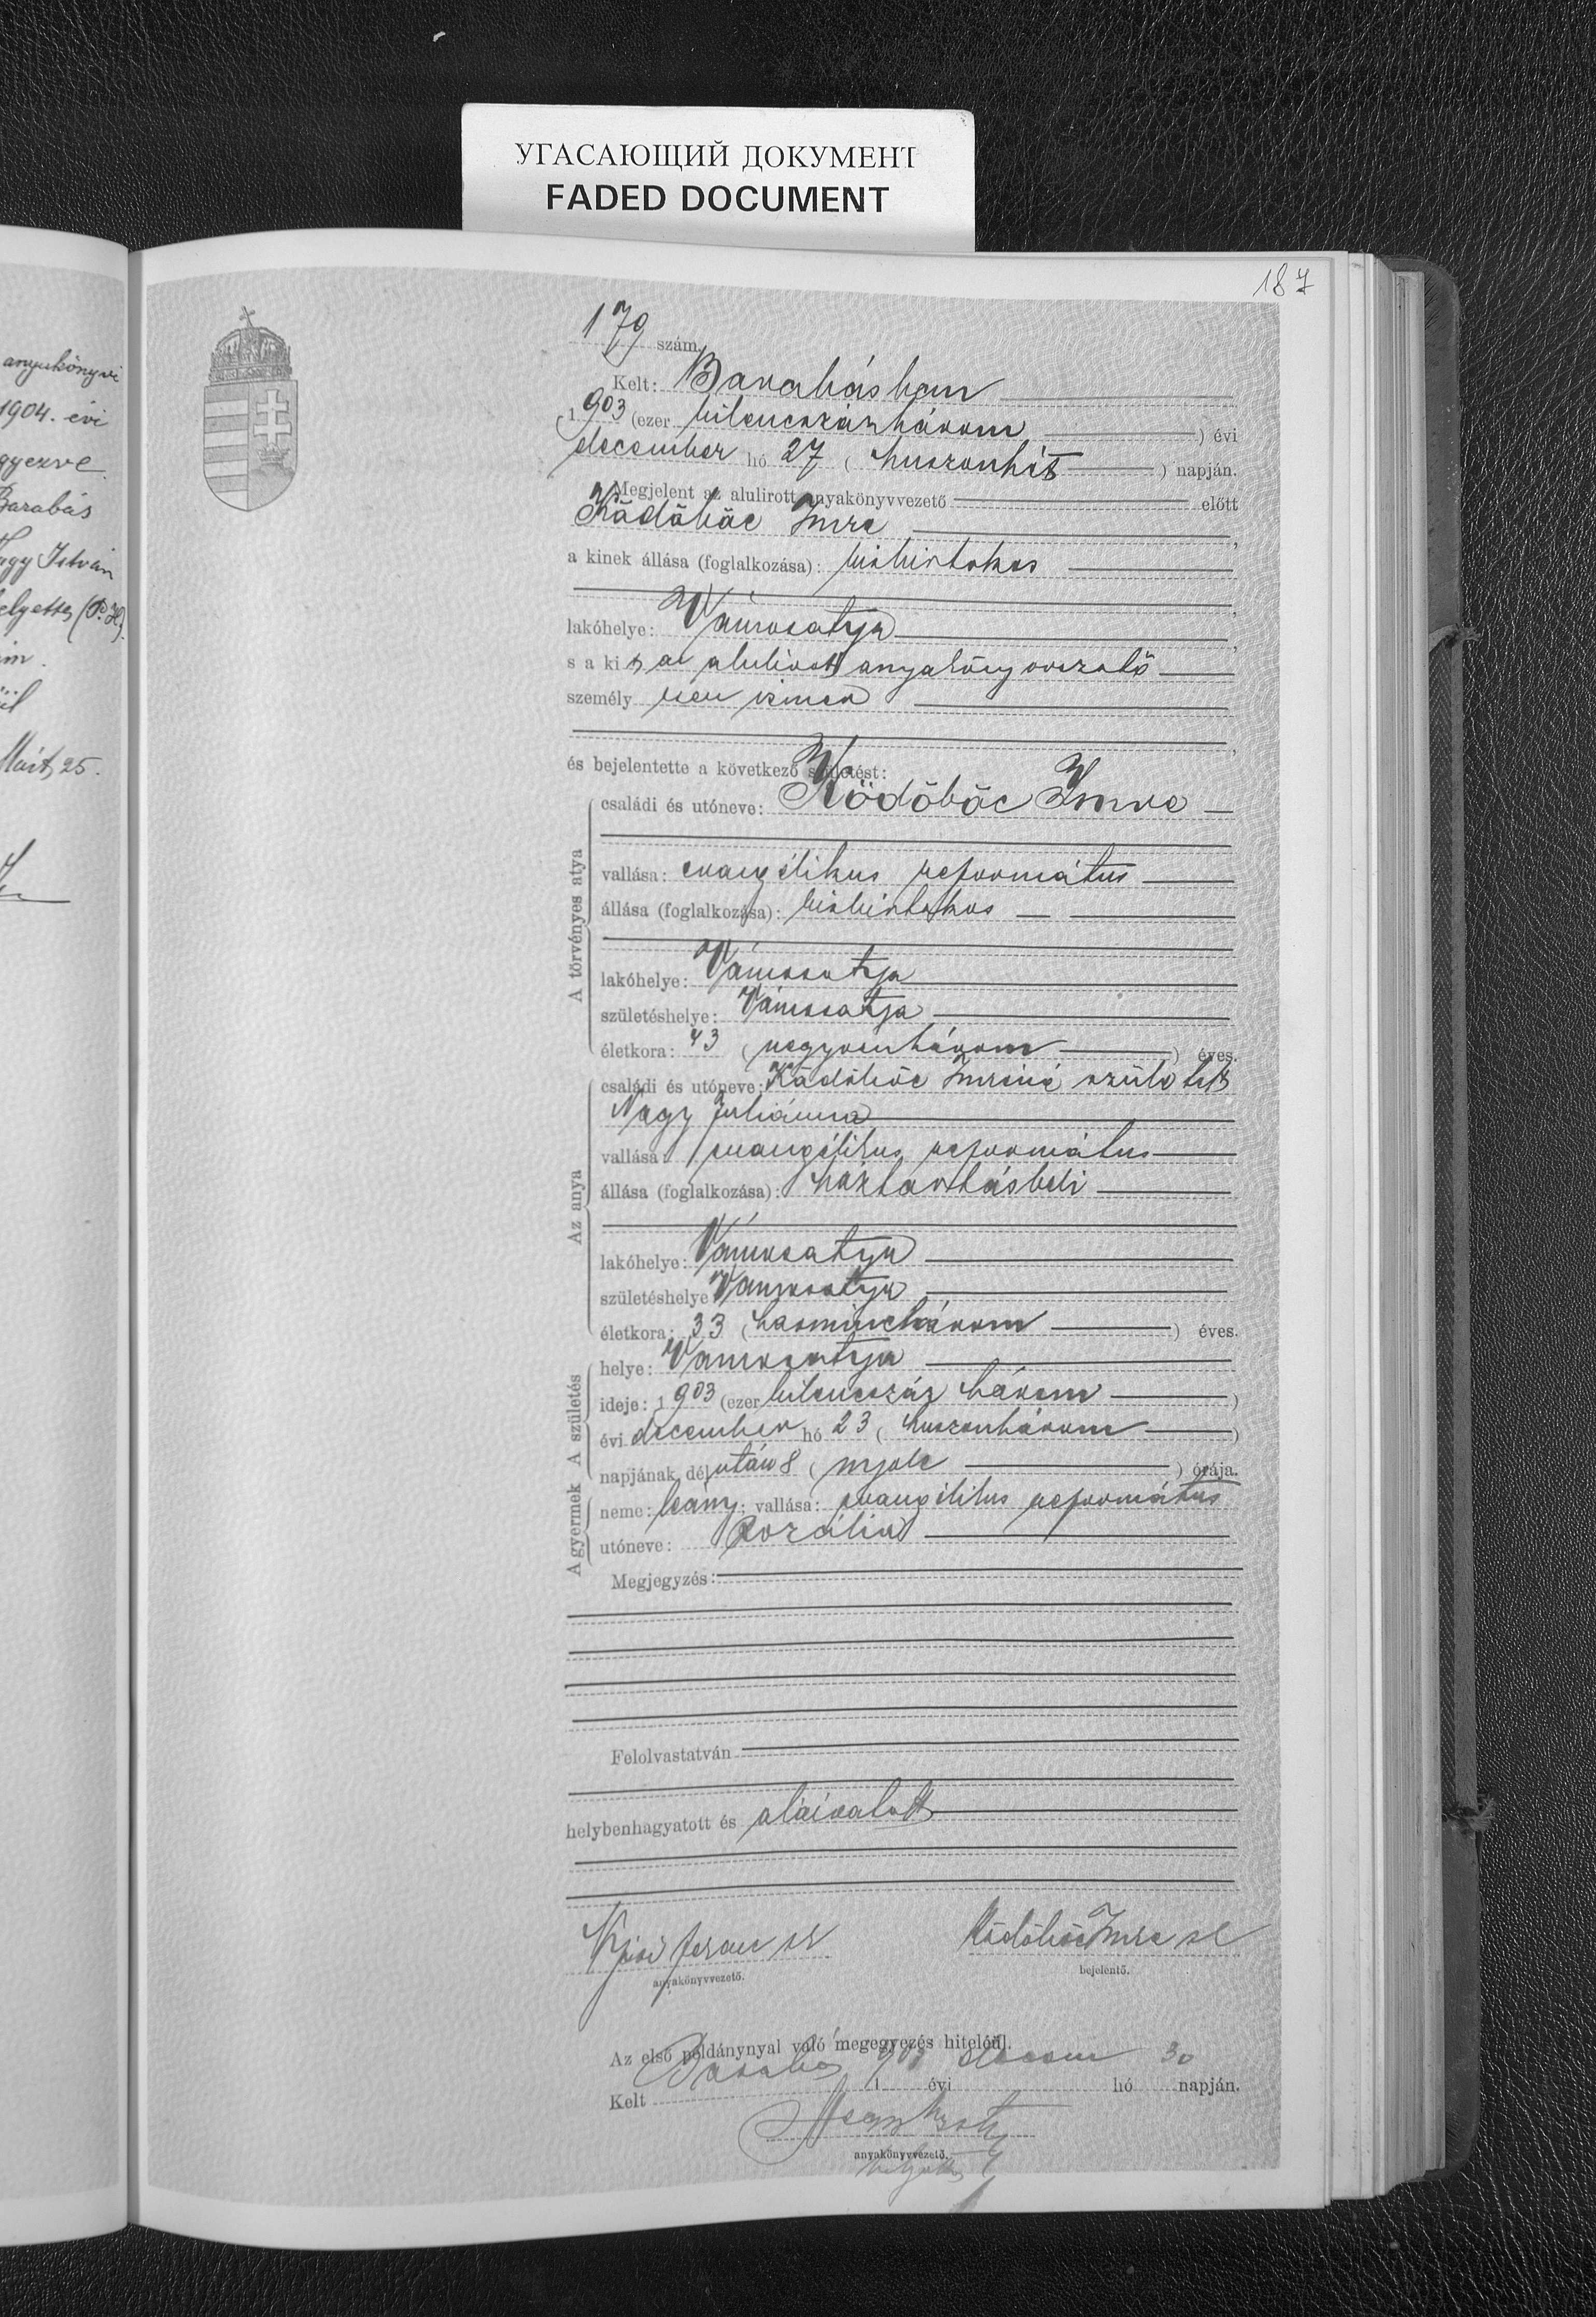 УГАСАЮЩИЙ ДОКУМЕНТ
FADED DOCUMENT
anyukönyvi
1904. évi
gyezve
Barabás
Nagy István
helyettes (P. H.)
Márt, 25.
187
179 szám.
Kelt: Barabásban
1903 (ezer kilencszázhárom) évi
december hó 27 (huszonhét) napján.
Megjelent az alulirott anyakönyvvezető előtt
Ködöböc Imre,
a kinek állása (foglalkozása): kisbirtokos,
lakóhelye: Vámosatya,
s a kit az alulirott anyakönyvvezető
személyesen ismer,
és bejelentette a következő születést:
A törvényes atya
családi és utóneve: Ködöböc Imre
vallása: evangélikus református
állása (foglalkozása): kisbirtokos
lakóhelye: Vámosatya
születéshelye: Vámosatya
életkora: 43 (negyvenhárom) éves.
Az anya
családi és utóneve: Ködöböc Imréné született
Nagy Juliánna
vallása: evangélikus református
állása (foglalkozása): háztartásbeli
lakóhelye: Vámosatya
születéshelye Vámosatya
életkora: 33 (harminchárom) éves.
A születés
helye: Vámosatya
ideje: 1903 (ezer kilencszáz három)
évi december hó 23 (huszonhárom)
napjának délután 8 (nyolc) órája.
A gyermek
neme: leány; vallása: evangélikus református
utóneve: Rozália
Megjegyzés:
Felolvastatván
helybenhagyatott és aláiratott
Ferenc sk Ködöböc Imre sk
anyakönyvvezető. bejelentő.
Az első példánynyal való megegyezés hiteléül.
Kelt Barabás 1903 évi decem hó 30 napján.
anyakönyvvezető.
helyettes